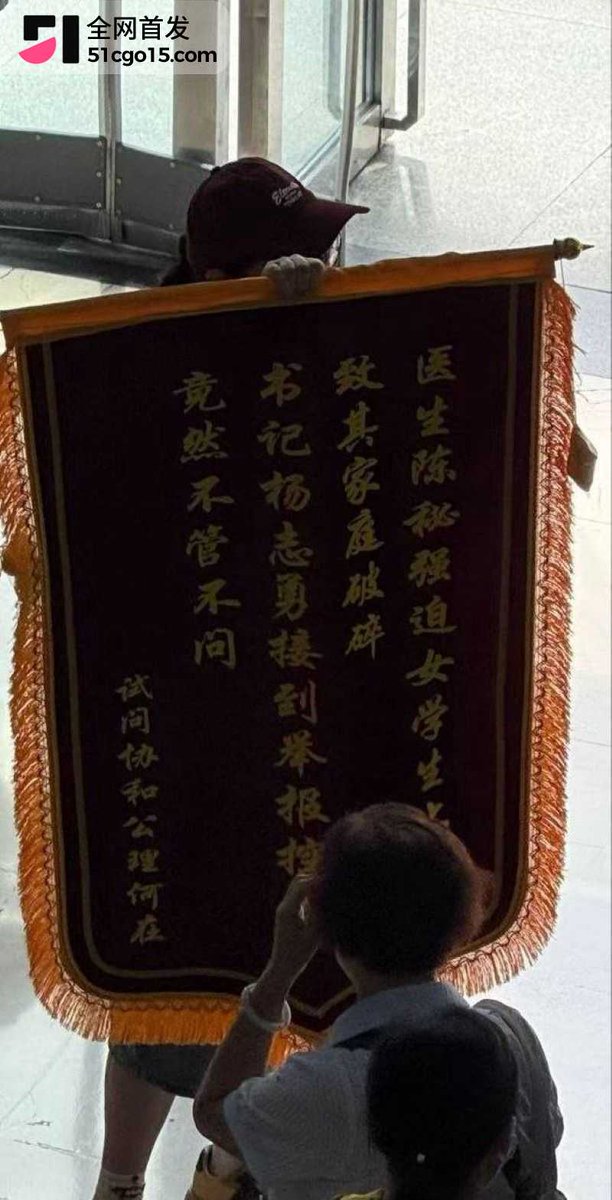 全网首发
51cgo15.com
医生陈秘强迫女学生
致其家庭破碎
书记杨志勇接到举报
竟然不管不问
试问协和公理何在